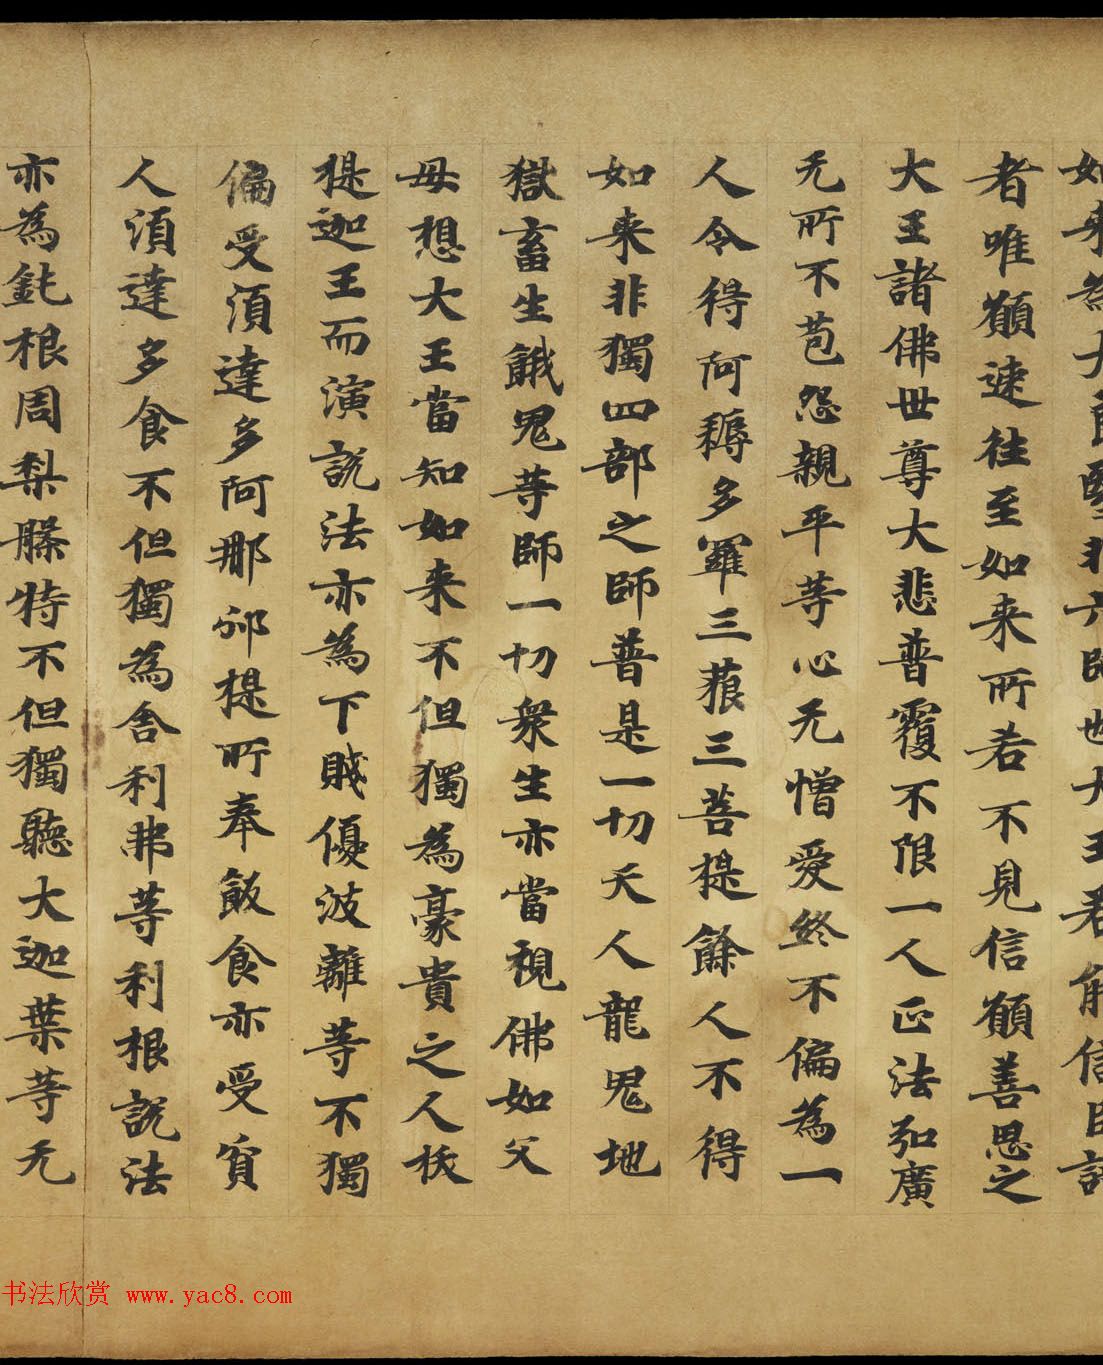 如来為大良醫非六師也大王若能信臣語
者唯願速往至如来所若不見信願善思之
大王諸佛世尊大悲普覆不限一人正法弘廣
无所不苞怨親平等心无憎愛終不偏為一
人令得阿耨多羅三藐三菩提餘人不得
如来非獨四部之師普是一切天人龍鬼地
獄畜生餓鬼等師一切衆生亦當視佛如父
母想大王當知如来不但獨為豪貴之人栰
提迦王而演說法亦為下賤優波離等不獨
偏受湏達多阿那邠提所奉飯食亦受貧
人湏達多食不但獨為舍利弗等利根說法
亦為鈍根周梨膝特不但獨聽大迦葉等无
书法欣赏 www.yac8.com